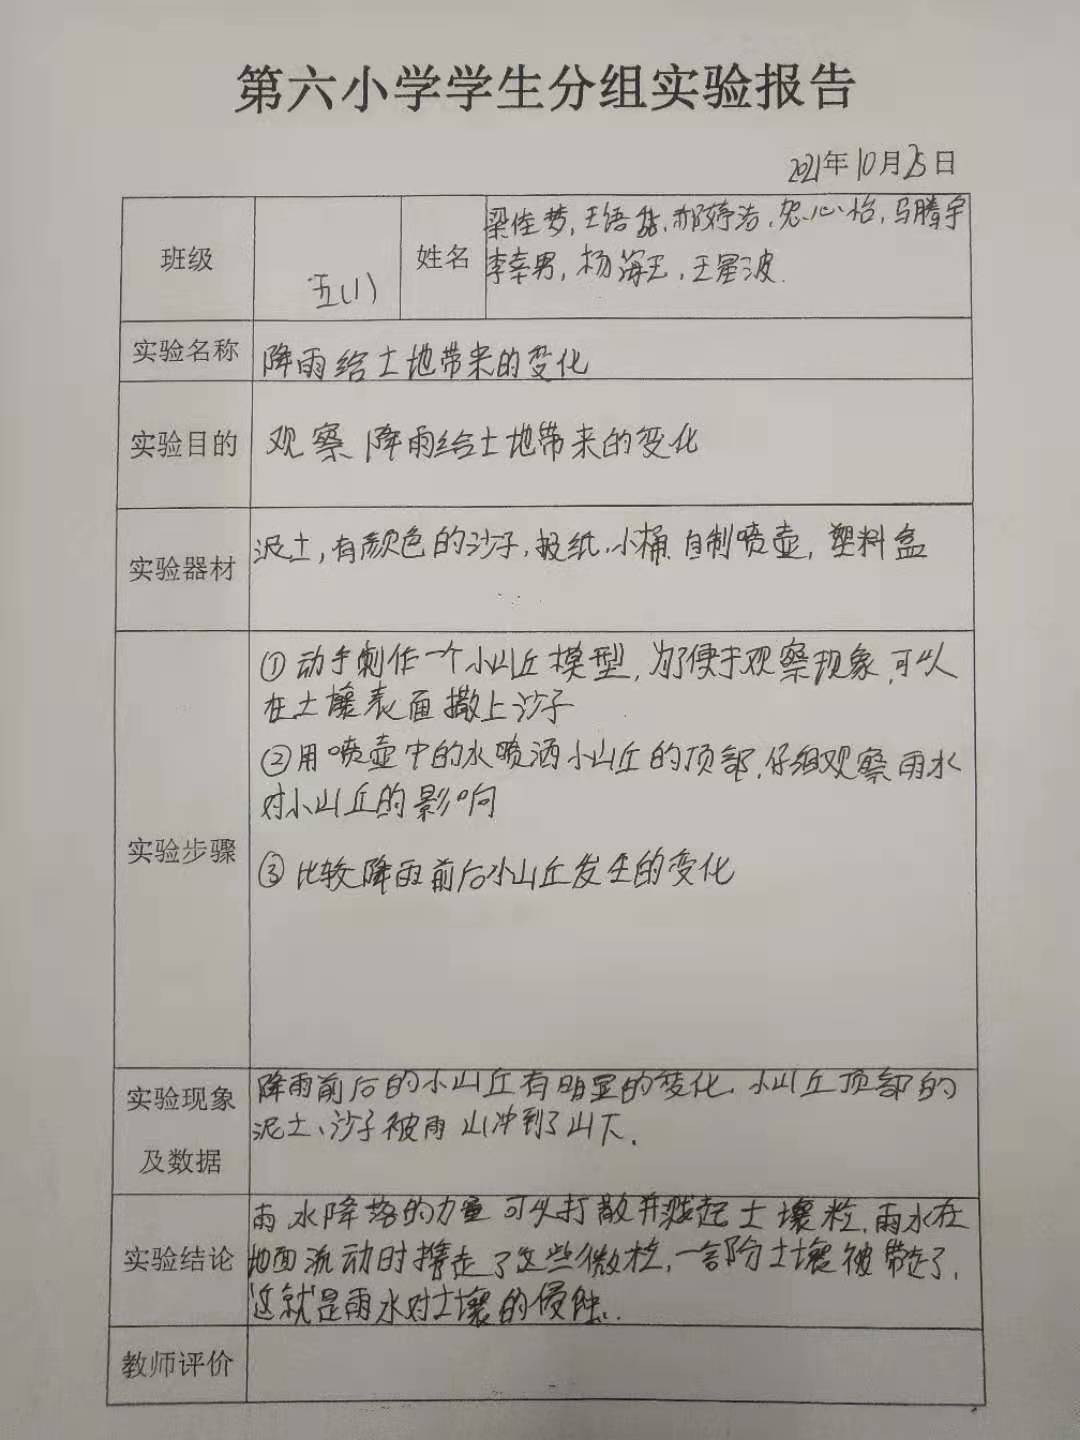 第六小学学生分组实验报告
2021年10月25日
班级
五(1)
姓名
梁佳梦,王语,郝婷洁,贺心怡,马腾宇
李幸男,杨海玉,王星波.
实验名称
降雨给土地带来的变化
实验目的
观察降雨给土地带来的变化
实验器材
泥土,有颜色的沙子,报纸,小桶,自制喷壶,塑料盒
实验步骤
①动手制作一个小山丘模型,为了便于观察现象,可以
在土壤表面撒上沙子
②用喷壶中的水喷洒小山丘的顶部,仔细观察雨水
对小山丘的影响
③比较降雨前后小山丘发生的变化
实验现象
及数据
降雨前后的小山丘有明显的变化.小山丘顶部的
泥土、沙子被雨山冲到了山下.
实验结论
雨水降落的力量可以打散并溅起土壤粒,雨水在
地面流动时携走了这些微粒,一部份土壤被带走了,
这就是雨水对土壤的侵蚀.
教师评价